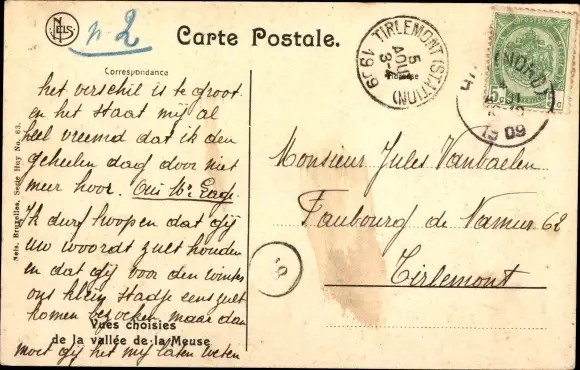 NELS
n 2
Carte Postale.
Correspondance
Adresse
TIRLEMONT (STATION)
5
AOU
3-4
1909
(NORD)
1909
5c 5c
het verschil is te groot
en het staat mij al
heel vreemd dat ik den
geheelen dag door niet
meer hoor. Oui Mr.
Ik durf hoopen dat gij
uw woordt zult houden
en dat gij voor den winter
ons klein stadje eens zult
komen bezoeken maar dan
moet gij het mij laten weten
Monsieur Jules Vanbaelen
Faubourg de Namur 62
Tirlemont
Vues choisies
de la vallée de la Meuse
Nels, Bruxelles, Serie Huy No. 63.